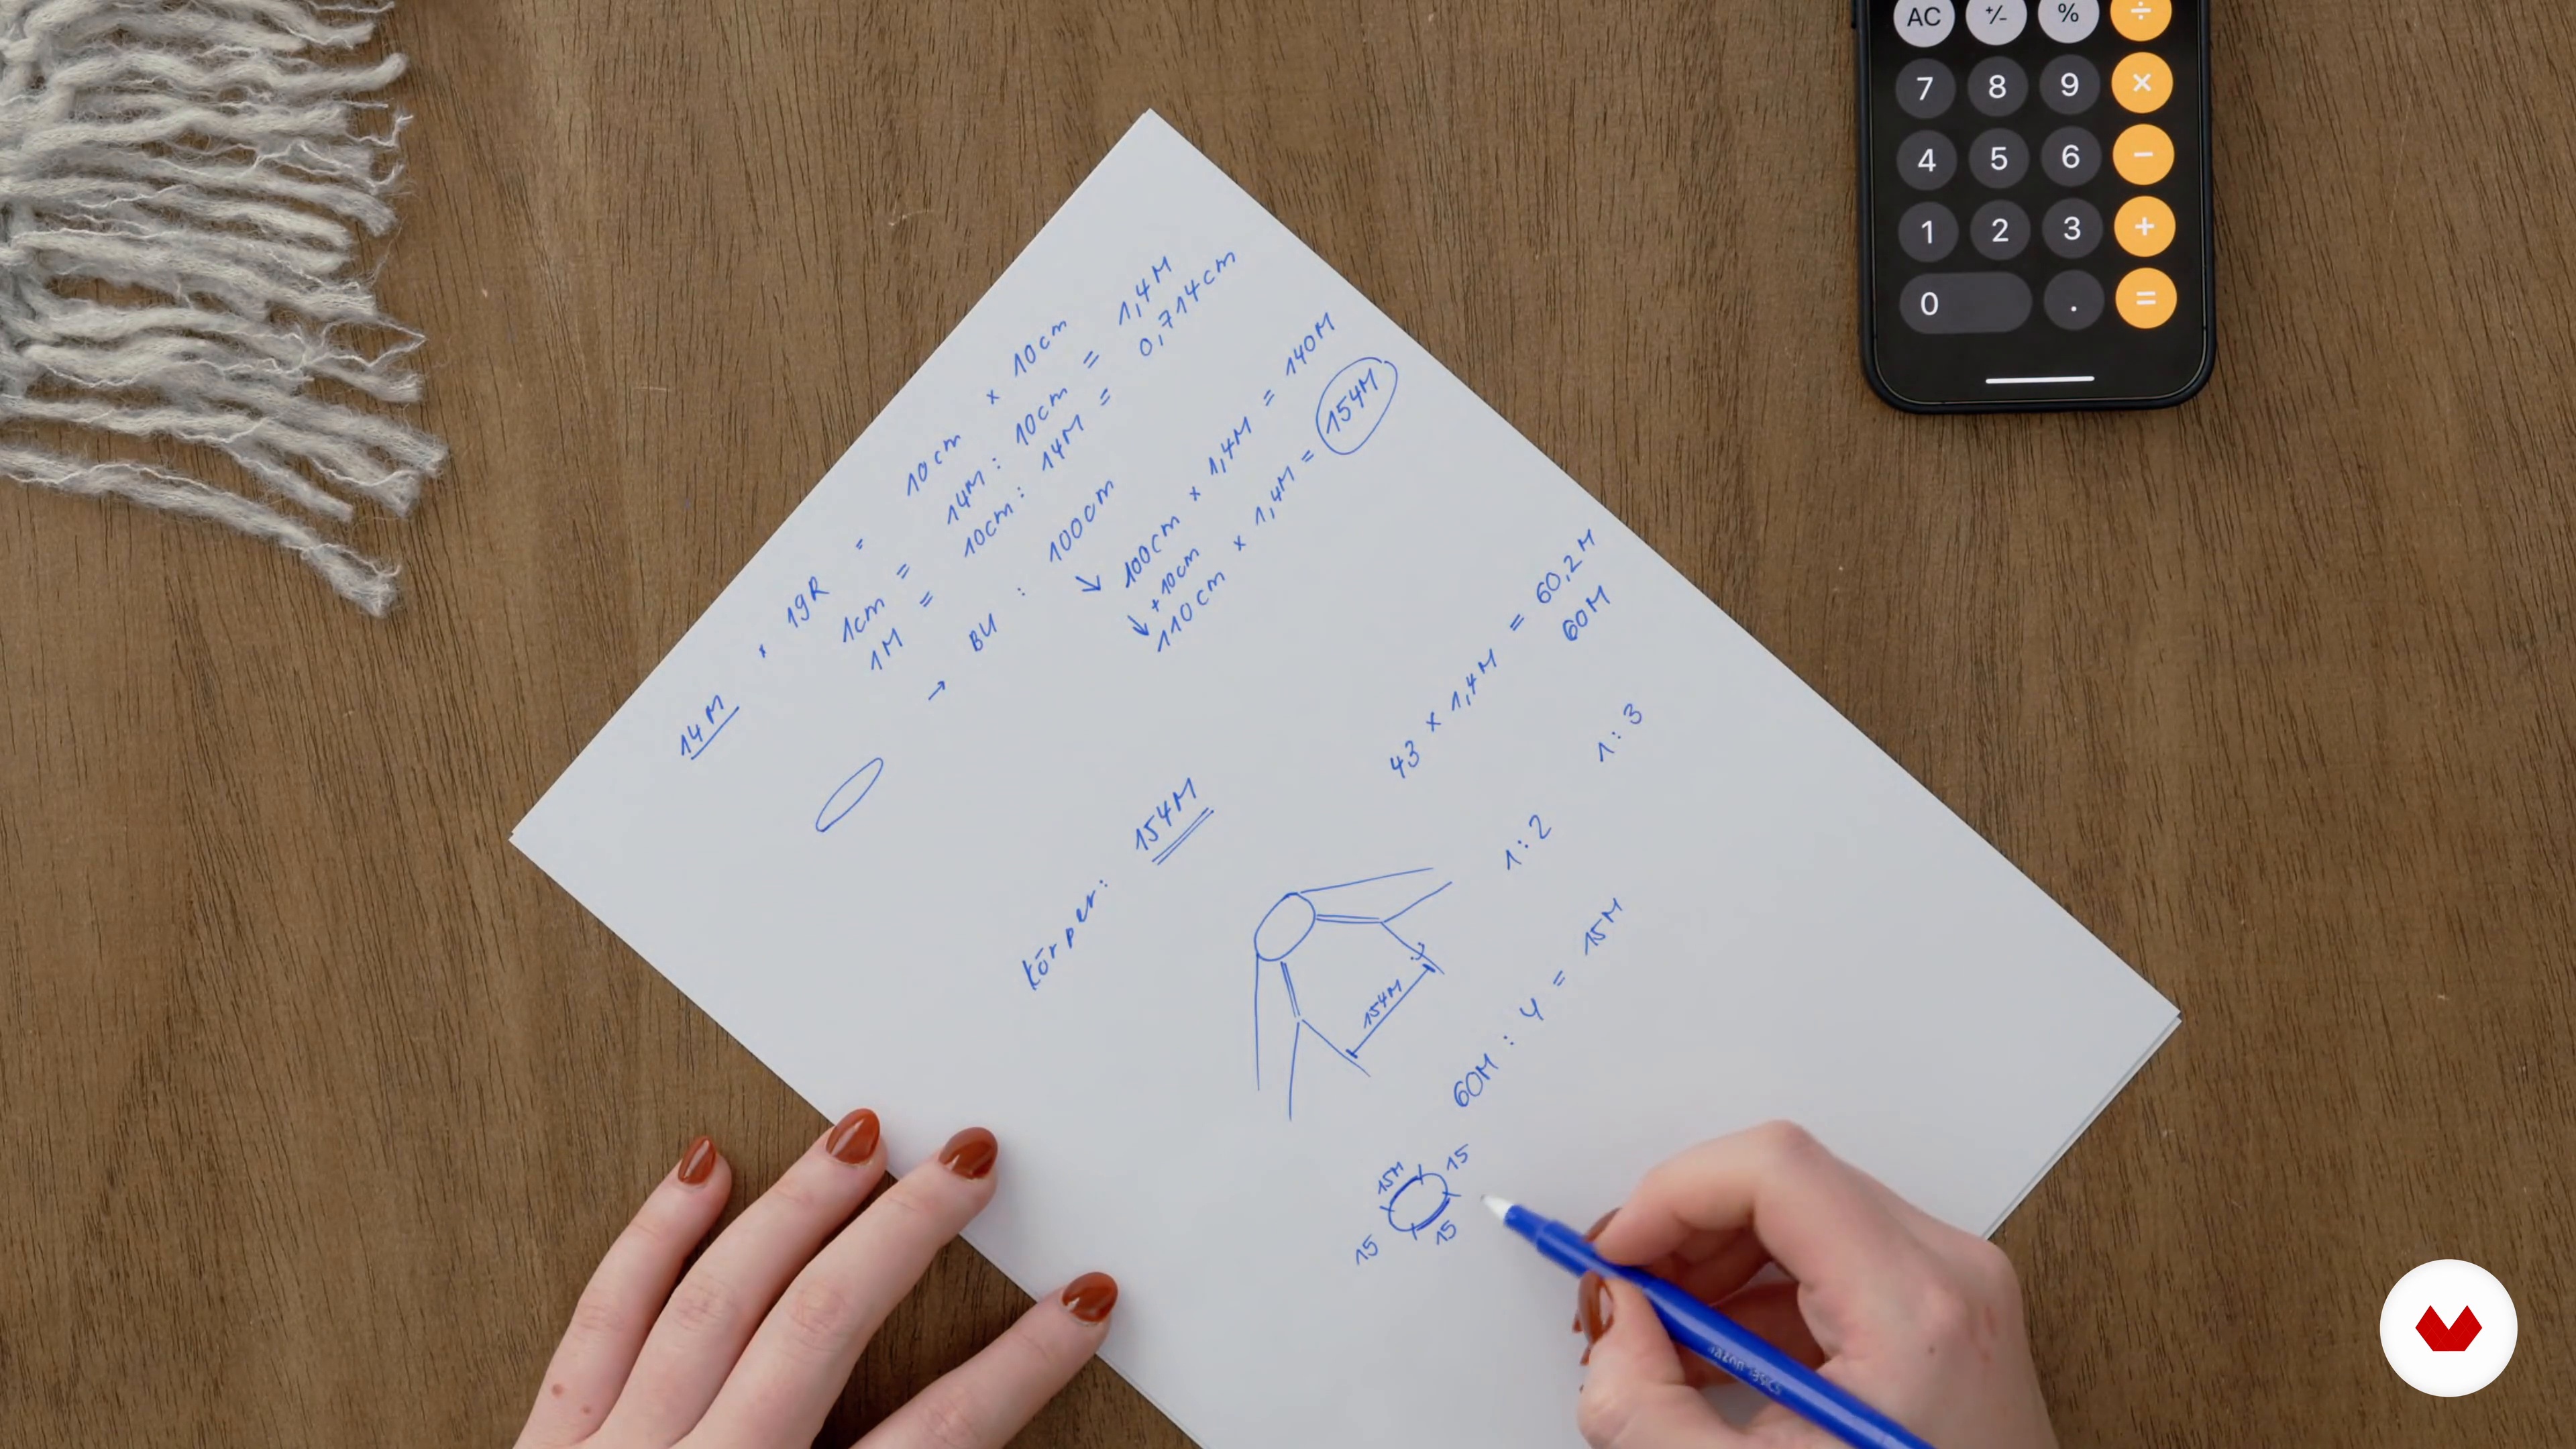 14M x 19R = 10cm x 10cm
1cm = 14M : 10cm = 1,4M
1M = 10cm : 14M = 0,714cm
→ BU : 100cm
↘ 100cm x 1,4M = 140M
+10cm
↘ 110cm x 1,4M = 154M
Körper: 154M
43 x 1,4M = 60,2M
60M
1:2 1:3
154M
60M : 4 = 15M
15M 15
15 15
AC +/- % ÷
7 8 9 ×
4 5 6 −
1 2 3 +
0 . =